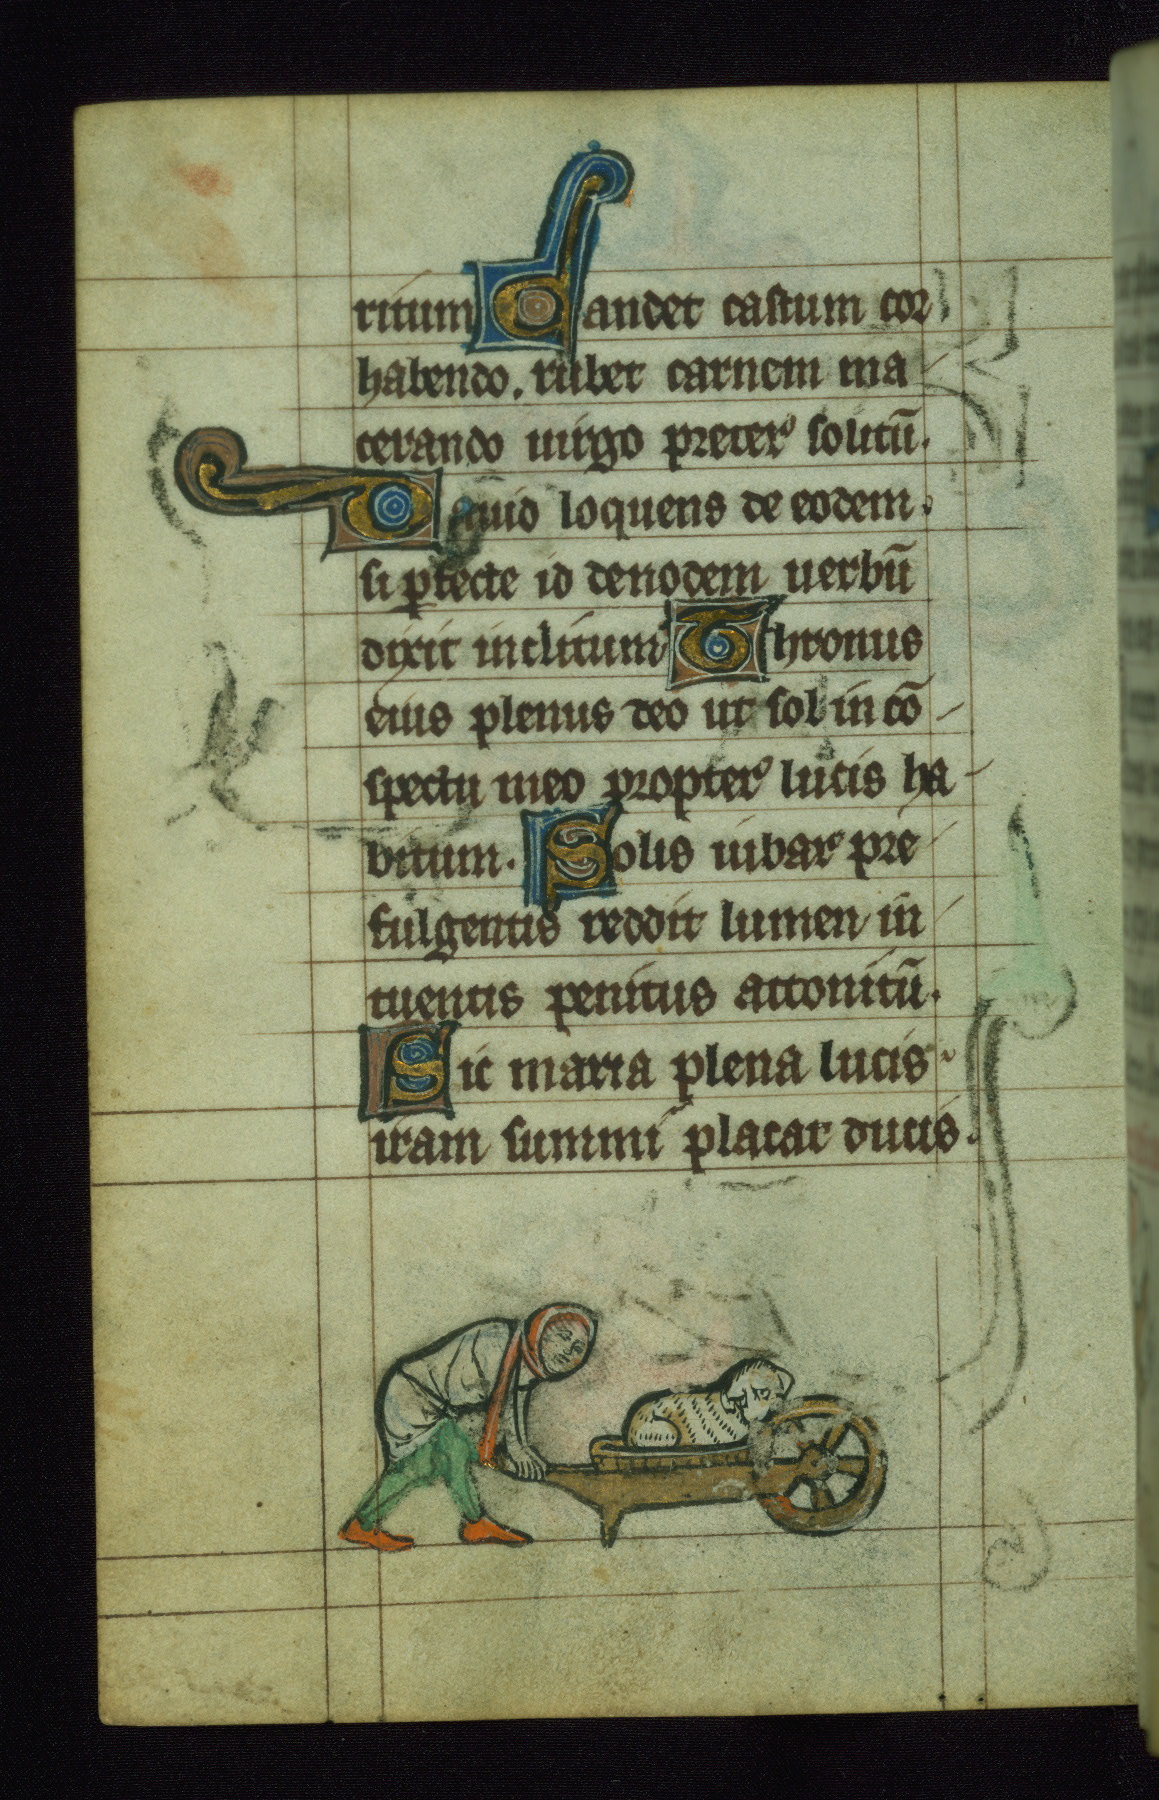 ritum Candet castum cor
habendo. rubet carnem ma
cerando uirgo preter solitū.
Dauid loquens de eodem.
si ꝑfecte id denodem uerbū
dixit inclitum Thronus
eius plenus deo ut sol in cō
spectu meo propter lucis ha
bitum. Solis iubar pre
fulgentis reddit lumen in
tuentis penitus attonitū.
Sic maria plena lucis
iram summi placat ducis.